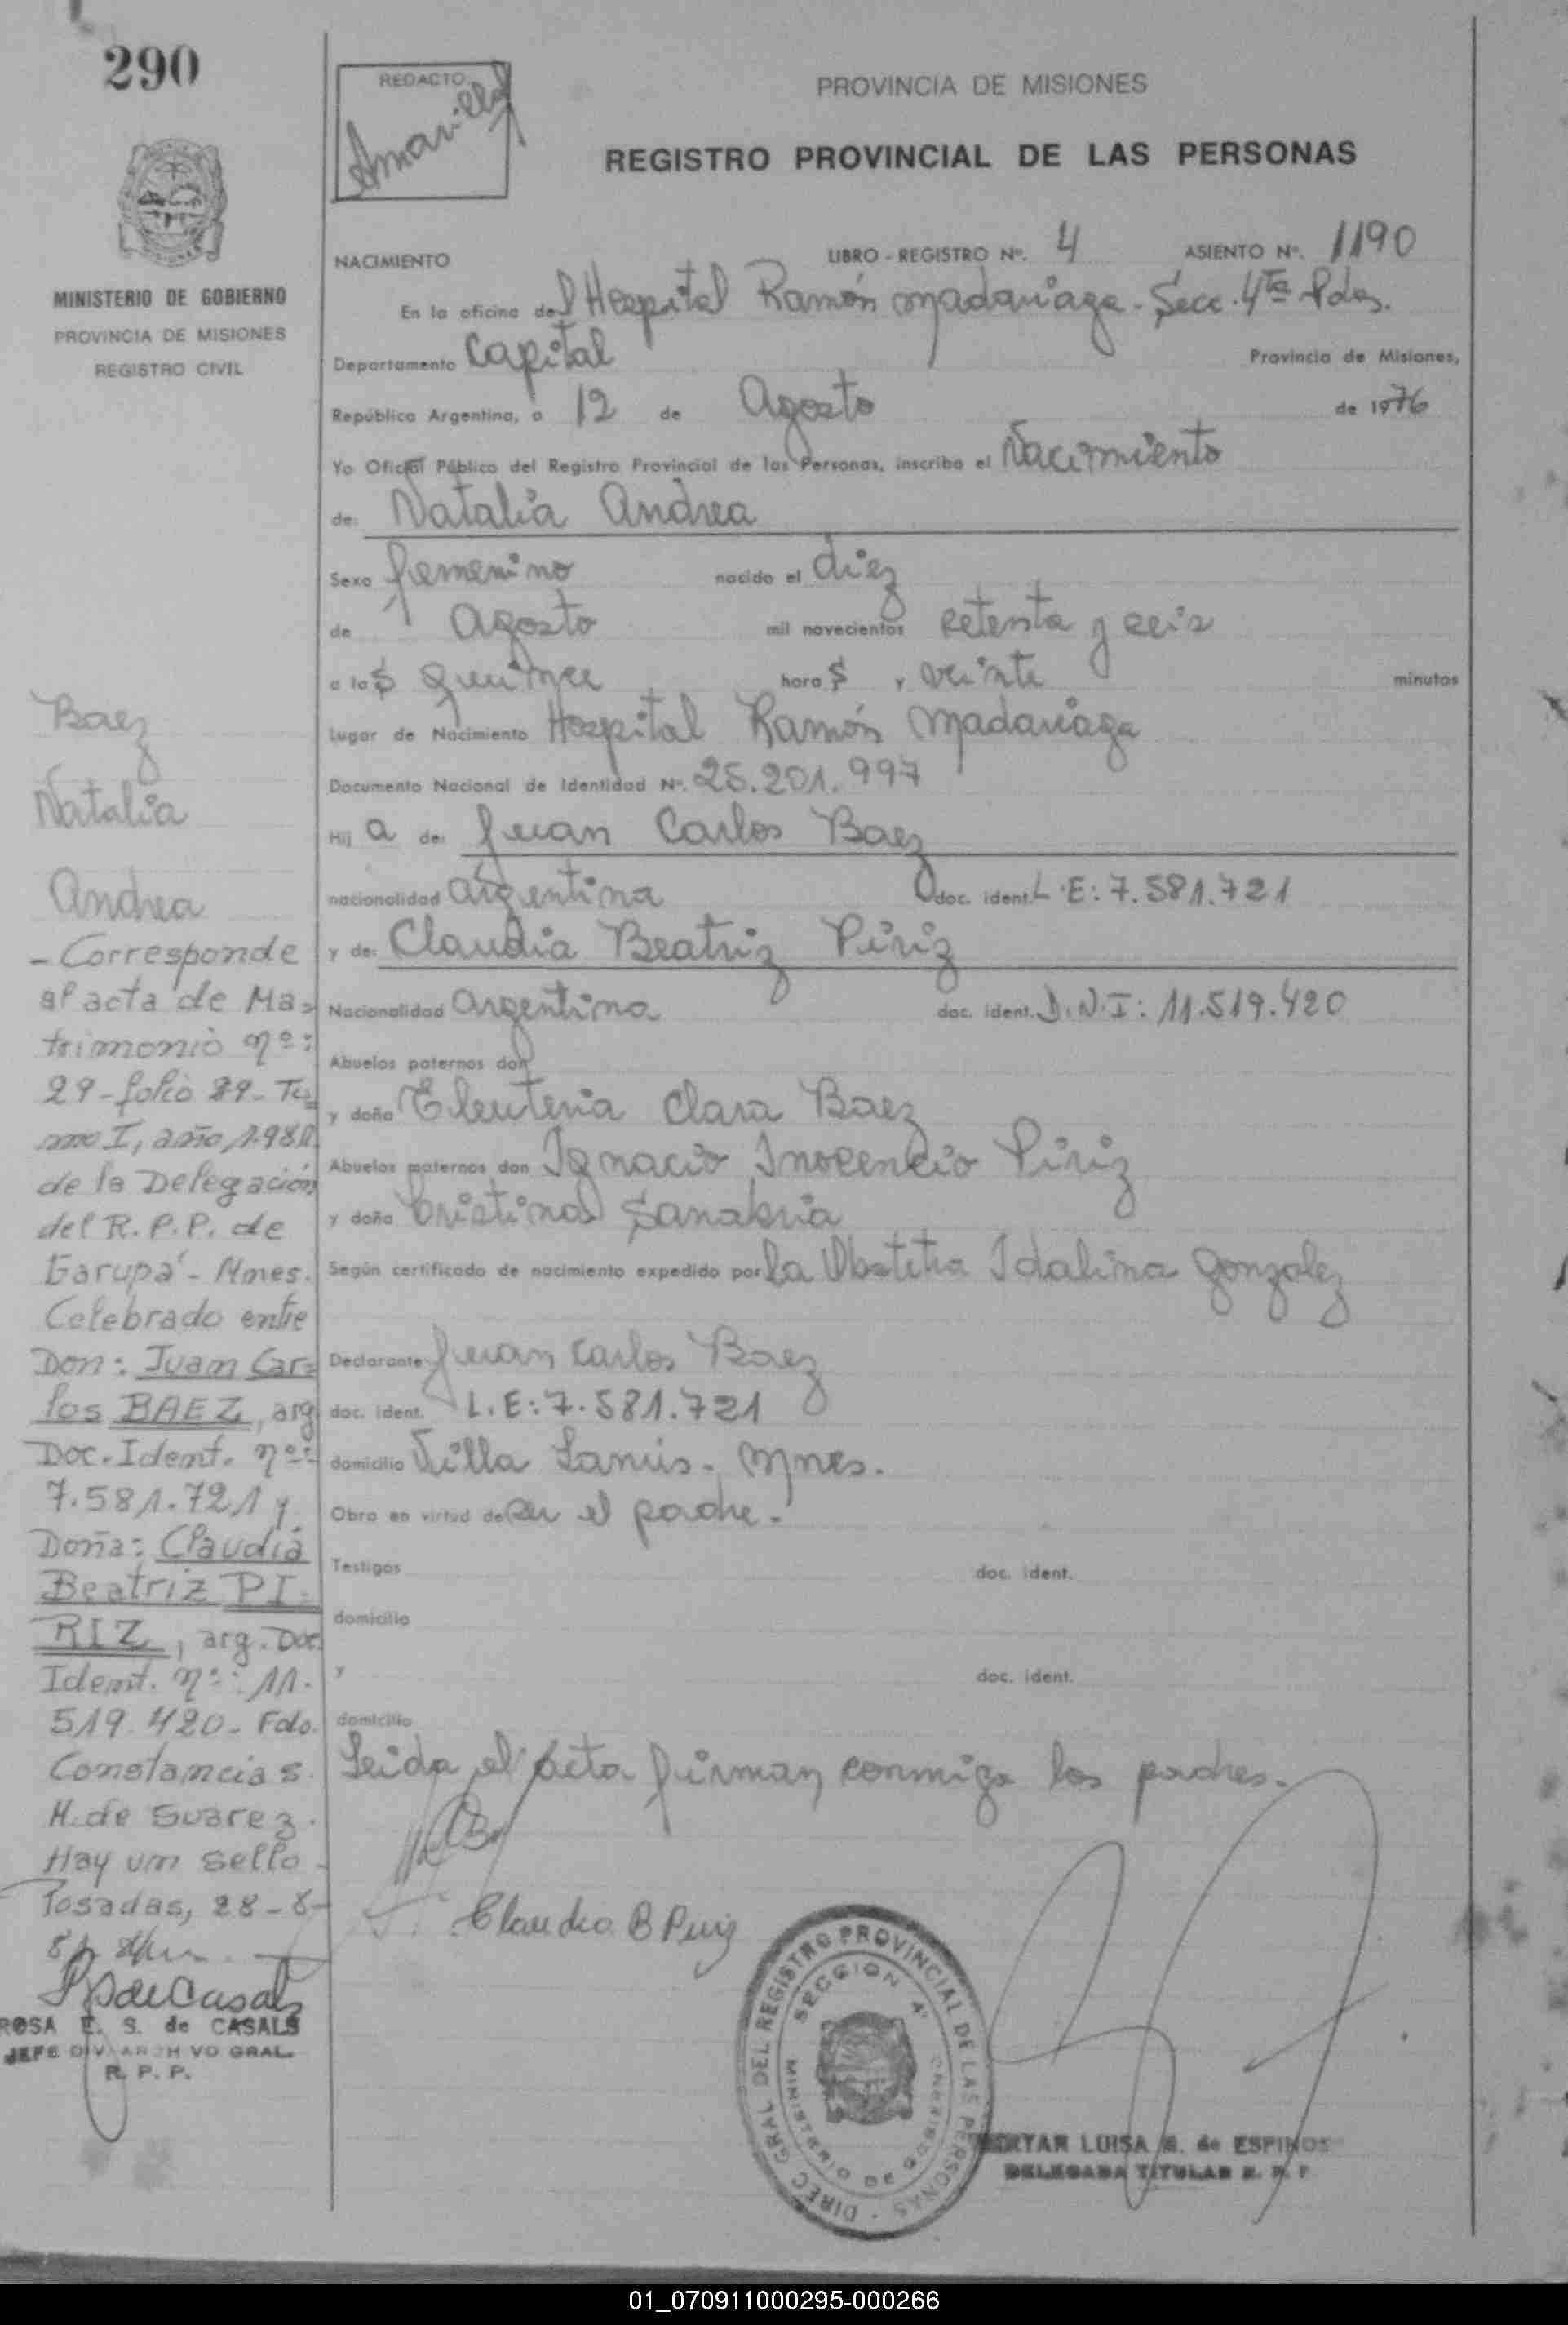 290
REDACTO
Amarilla
PROVINCIA DE MISIONES
REGISTRO PROVINCIAL DE LAS PERSONAS
MINISTERIO DE GOBIERNO
PROVINCIA DE MISIONES
REGISTRO CIVIL
NACIMIENTO LIBRO - REGISTRO Nº. 4 ASIENTO Nº. 1190
En la oficina del Hospital Ramón Madariaga - Secc. 4ta Pdas.
Departamento Capital Provincia de Misiones,
República Argentina, a 12 de Agosto de 1976
Yo Oficial Público del Registro Provincial de las Personas, inscribo el Nacimiento
de: Natalia Andrea
Sexo femenino nacido el diez
de Agosto mil novecientos setenta y seis
a las quince horas y veinte minutos
Lugar de Nacimiento Hospital Ramón Madariaga
Documento Nacional de Identidad Nº. 25.201.997
Hij a de: Juan Carlos Baez
nacionalidad argentina doc. ident. L.E: 7.581.721
y de: Claudia Beatriz Piriz
Nacionalidad argentina doc. ident. D.N.I: 11.519.420
Abuelos paternos don
y doña Eleuteria Clara Baez
Abuelos maternos don Ignacio Inocencio Piriz
y doña Cristina Sanabria
Según certificado de nacimiento expedido por la Obstetra Idalina Gonzalez
Declarante Juan Carlos Baez
doc. ident. L.E: 7.581.721
domicilio Villa Lanús - Mnes.
Obra en virtud de ser el padre.-
Testigos doc. ident.
domicilio
y doc. ident.
domicilio
Leida el acta firman conmigo los padres.-
Claudia B Piriz
Baez
Natalia
Andrea
- Corresponde
al acta de Ma=
trimonio nº:
29 - folio 29 - To
mo I, año 1.981
de la Delegación
del R. P. P. de
Garupá - Mnes.
Celebrado entre
Don: Juan Car=
los BAEZ, arg
Doc. Ident. nº:
7.581.721 y
Doña: Claudia
Beatriz PI=
RIZ, arg. Doc.
Ident. nº: 11.
519.420 - Fdo.
Constancia S.
H. de Suarez.
Hay un sello -
Posadas, 28-8-
RSdeCasals
ROSA E. S. de CASALS
JEFE DIV. ARCHIVO GRAL.
R. P. P.
DIREC. GRAL DEL REGISTRO PROVINCIAL DE LAS PERSONAS
SECCION 4º
MINISTERIO DE GOBIERNO
LUISA M. de ESPINOS
DELEGADA TITULAR R. P. P.
01_070911000295-000266